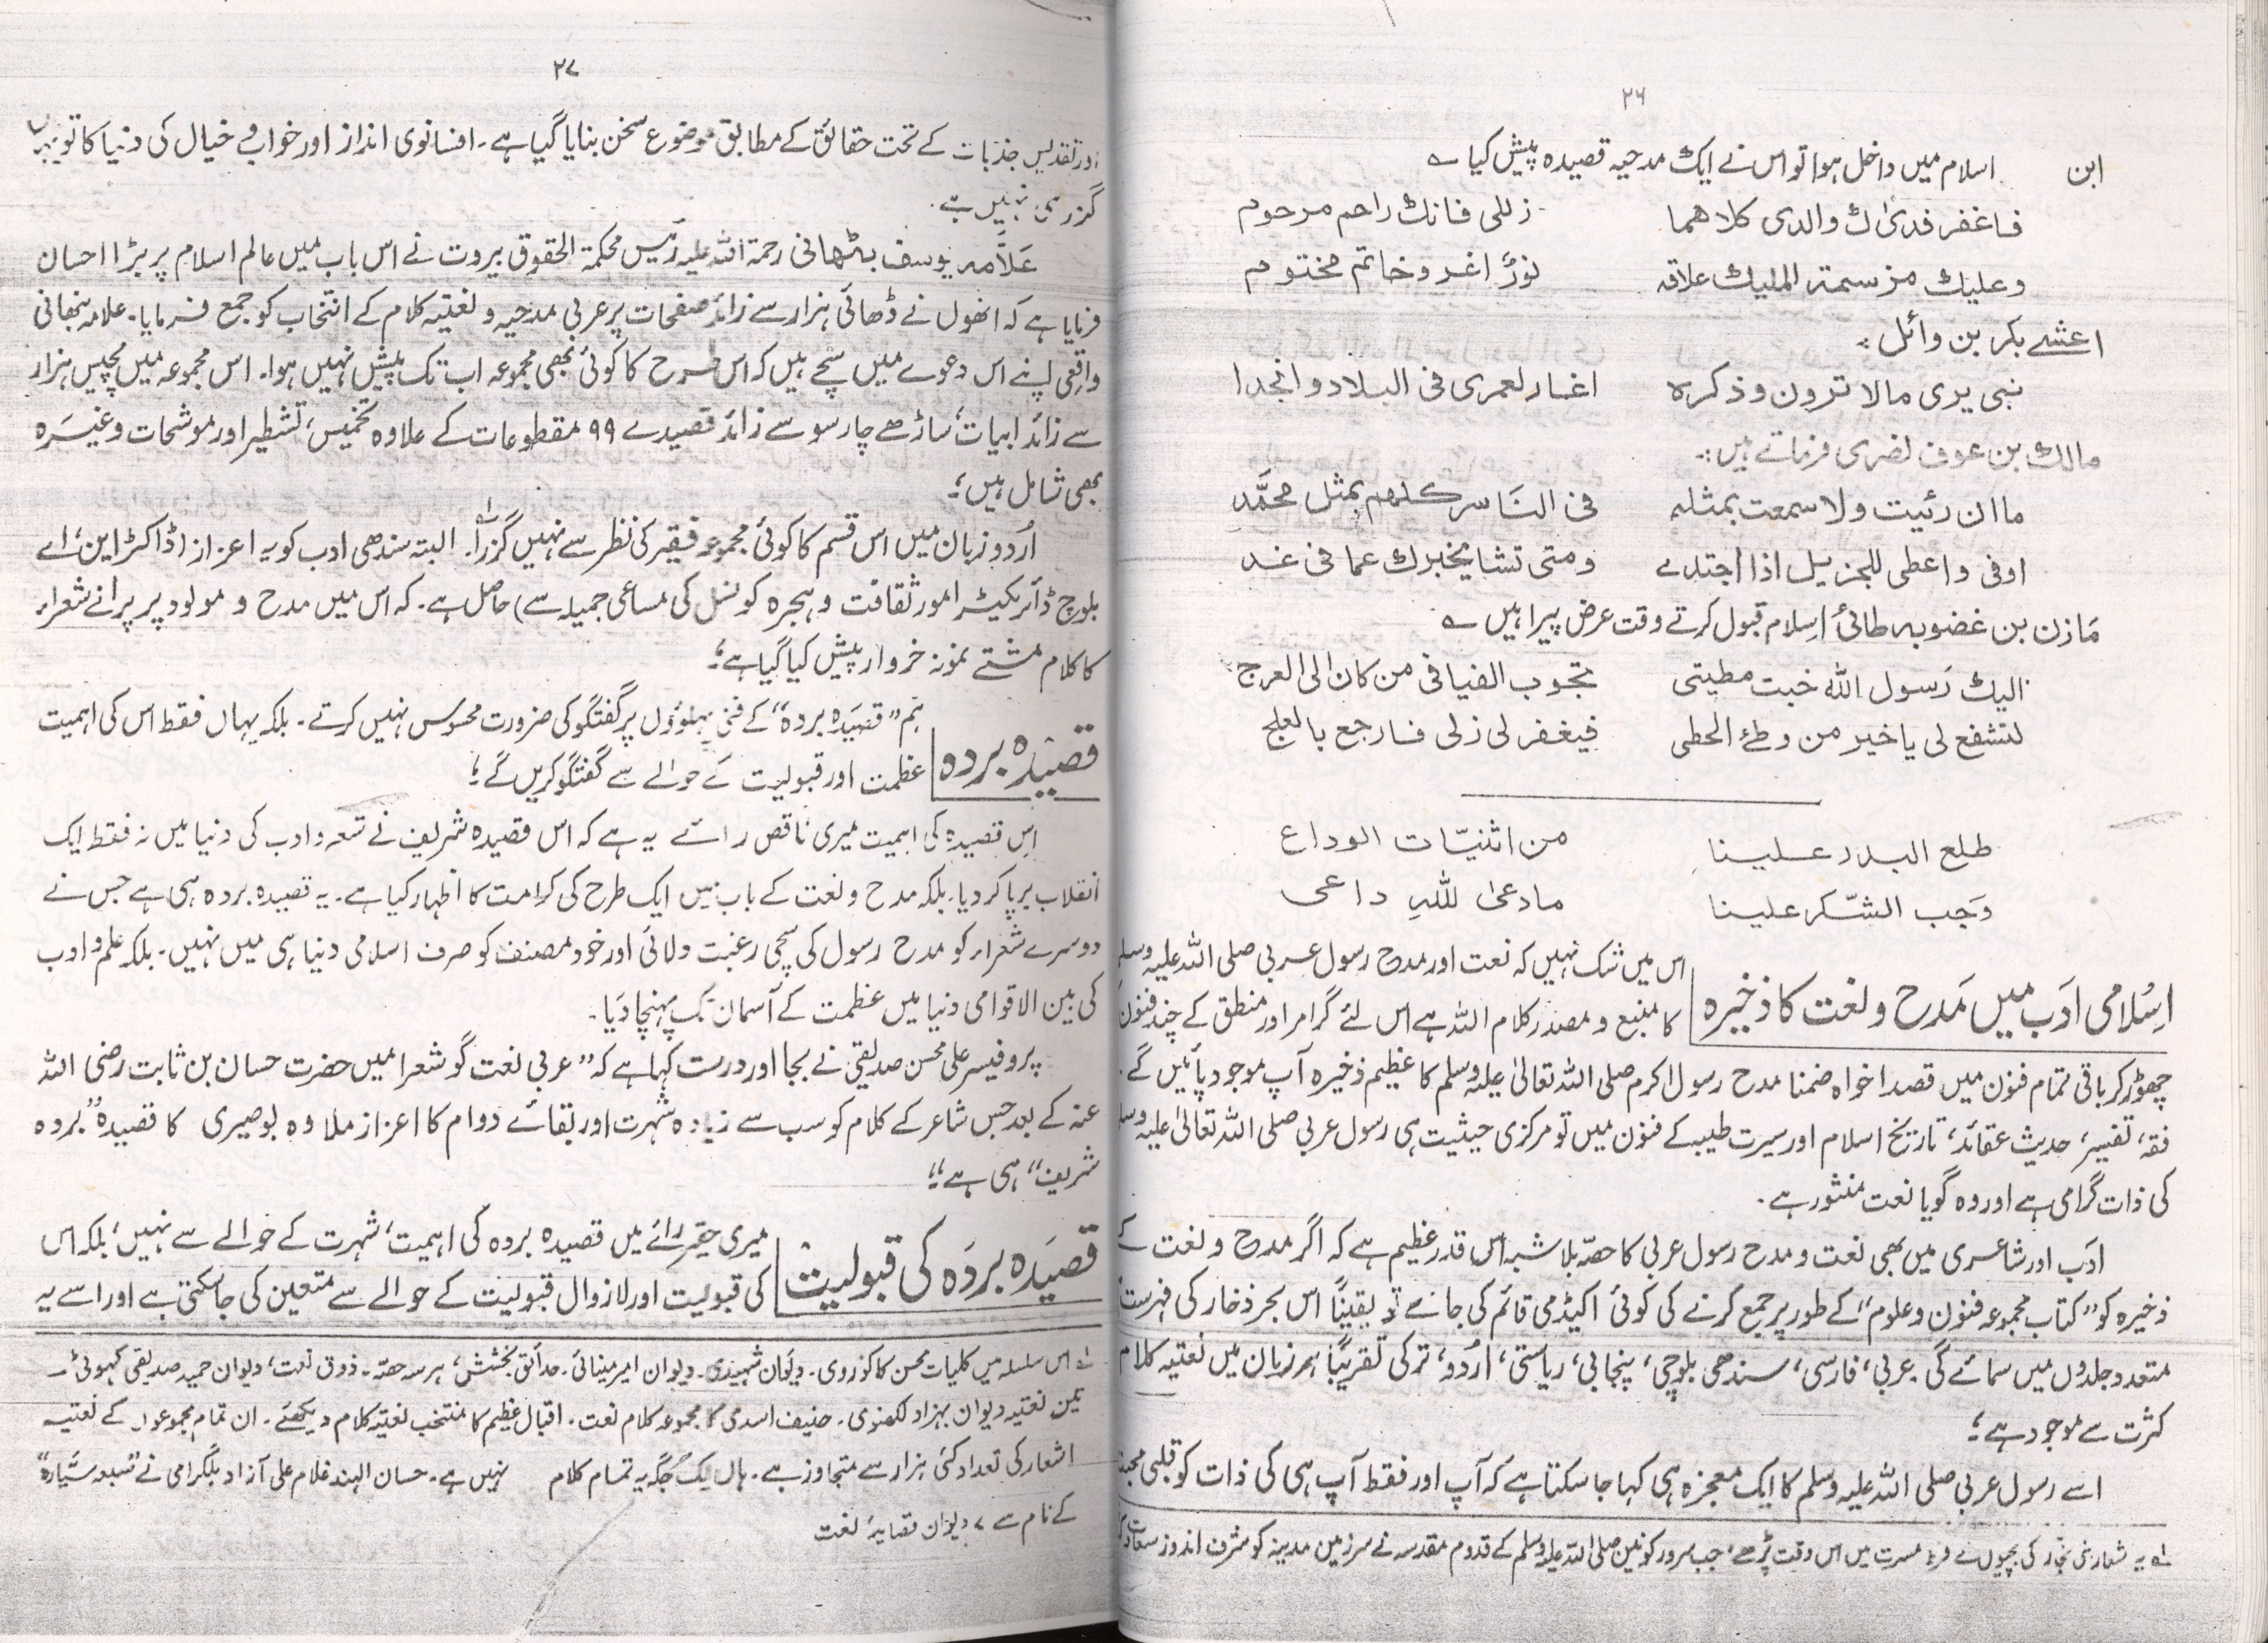 ۲۶
ابن اسلام میں داخل ہوا تو اس نے ایک مدحیہ قصیدہ پیش کیا ؎
فاغفر فدیٰ لک والدی کلاهما زللی فانک راحم مرحوم
وعلیک من سمة الملیک علاقہ نورٌ اغر وخاتم مختوم
اعشے بکر بن وائل :۔
نبی یری مالا ترون وذکرہ اغار لعمری فی البلاد وانجدا
مالک بن عوف نضری فرماتے ہیں :۔
ما ان رئیت ولا سمعت بمثلہ فی الناس کلهم بمثل محمَّدِ
اوفی واعطی للجزیل اذا اجتدے ومتی تشا یخبرک عما فی غد
مَازن بن غضوبہ طائیؓ اِسلام قبول کرتے وقت عرض پیرا ہیں ؎
الیک رَسول اللہ خبت مطیتی تجوب الفیافی من کان الی العرج
لتشفع لی یا خیر من وطئ الحطی فیغفر لی زلی فارجع بالعلج
طلع البدر علینا من اثنیّات الوداع
وَجب الشّکر علینا مادعیٰ للّٰہِ داعی
اِسْلامی ادَب میں مَدح و نعت کا ذخیرہ
اس میں شک نہیں کہ نعت اور مدح رسول عربی صلی اللہ علیہ وسلم
کا منبع و مصدر کلام اللہ ہے اس لئے گرامر اور منطق کے چند فنون
چھوڑ کر باقی تمام فنون میں قصدا خواہ ضمنا مدح رسول اکرم صلی اللہ تعالیٰ علیہ وسلم کا عظیم ذخیرہ آپ موجود پائیں گے۔
فقہ، تفسیر، حدیث عقائد، تاریخ اسلام اور سیرت طیبہ کے فنون میں تو مرکزی حیثیت ہی رسول عربی صلی اللہ تعالیٰ علیہ وسلم
کی ذات گرامی ہے اور وہ گویا نعت منثور ہے۔
ادَب اور شاعری میں بھی نعت و مدح رسول عربی کا حصّہ بلا شبہ اس قدر عظیم ہے کہ اگر مدح و نعت کے
ذخیرہ کو ”کتاب مجموعہ فنون و علوم“ کے طور پر جمع کرنے کی کوئی اکیڈمی قائم کی جائے تو یقیناً اس بحر ذخار کی فہرست
متعدد جلدوں میں سمائے گی۔ عربی، فارسی، سندھی بلوچی، پنجابی، ریاستی، اُردو، ترکی تقریباً ہر زبان میں نعتیہ کلام
کثرت سے موجود ہے ؛
اسے رسول عربی صلی اللہ علیہ وسلم کا ایک معجزہ ہی کہا جا سکتا ہے کہ آپ اور فقط آپ ہی کی ذات کو قلبی
لہ یہ شعار بنی نجار کی بچیوں نے فرط مسرت میں اس وقت پڑھے، جب سرور کونین صلی اللہ علیہ وسلم کے قدوم مقدسہ نے سرزمین مدینہ کو شرف اندوز سعادت
۲۷
اور تقدیس جذبات کے تحت حقائق کے مطابق موضوع سخن بنایا گیا ہے۔ افسانوی انداز اور خواب و خیال کی دنیا کا تو یہاں
گزر ہی نہیں ہے۔
عَلاَّمہ یوسف بنھانی رحمۃ اللہ علیہ رئیس محکمۃ الحقوق بیروت نے اس باب میں عالم اسلام پر بڑا احسان
فرمایا ہے کہ انھوں نے ڈھائی ہزار سے زائد صفحات پر عربی مدحیہ و نعتیہ کلام کے انتخاب کو جمع فرمایا۔ علامہ بنھانی
واقعی اپنے اس دعوے میں سچے ہیں کہ اس طرح کا کوئی بھی مجموعہ اب تک پیش نہیں ہوا۔ اس مجموعہ میں پچیس ہزار
سے زائد ابیات، ساڑھے چار سو سے زائد قصیدے ۹۹ مقطوعات کے علاوہ تخمیس، تشطیر اور موشحات وغیرہ
بھی شامل ہیں ؛
اُردو زبان میں اس قسم کا کوئی مجموعہ فقیر کی نظر سے نہیں گزرا لہ۔ البتہ سندھی ادب کو یہ اعزاز (ڈاکٹر این، اے
بلوچ ڈائریکیٹر امور ثقافت و ہجرہ کونسل کی مساعی جمیلہ سے) حاصل ہے۔ کہ اس میں مدح و مولود پر پرانے شعراء
کا کلام مشتے نمونہ خروار پیش کیا گیا ہے ؛
قصیدہ بردہ
ہم ”قصیدہ بردہ“ کے فنی پہلوؤں پر گفتگو کی ضرورت محسوس نہیں کرتے۔ بلکہ یہاں فقط اس کی اہمیت
عظمت اور قبولیت کے حوالے سے گفتگو کریں گے ؛
اس قصیدہ کی اہمیت میری ناقص رائے یہ ہے کہ اس قصیدہ شریف نے شعر و ادب کی دنیا میں نہ فقط ایک
انقلاب برپا کر دیا۔ بلکہ مدح و نعت کے باب میں ایک طرح کی کرامت کا اظہار کیا ہے۔ یہ قصیدہ بردہ ہی ہے جس نے
دوسرے شعراء کو مدح رسول کی سچی رغبت دلائی اور خود مصنف کو صرف اسلامی دنیا ہی میں نہیں۔ بلکہ علم و ادب
کی بین الاقوامی دنیا میں عظمت کے آسمان تک پہنچا دیا۔
پروفیسر علی محسن صدیقی نے بجا اور درست کہا ہے کہ ”عربی نعت گو شعرا میں حضرت حسان بن ثابت رضی اللہ
عنہ کے بعد جس شاعر کے کلام کو سب سے زیادہ شہرت اور بقائے دوام کا اعزاز ملا وہ بوصیری کا قصیدہ ”بردہ
شریف“ ہی ہے“؛
قصیَدہ بردَہ کی قبولیت
میری حقیر رائے میں قصیدہ بردہ کی اہمیت، شہرت کے حوالے سے نہیں، بلکہ اس
کی قبولیت اور لازوال قبولیت کے حوالے سے متعین کی جا سکتی ہے اور اسے یہ
لہ اس سلسلہ میں کلیات محسن کاکوروی۔ دیوان شہیدی۔ دیوان امیر مینائی۔ حدائق بخشش، ہر سہ حصّہ۔ ذوق نعت، دیوان حمید صدیقی
تین نعتیہ دیوان بہزاد لکھنوی۔ حنیف اسدی کا مجموعہ کلام نعت۔ اقبال عظیم کا منتخب نعتیہ کلام دیکھئے۔ ان تمام مجموعوں کے نعتیہ
اشعار کی تعداد کئی ہزار سے متجاوز ہے۔ ہاں یک جگہ یہ تمام کلام نہیں ہے۔ حسان الہند غلام علی آزاد بلگرامی نے ”سبعہ سیّارہ“
کے نام سے ۷ دیوان قصایدٔ نعت